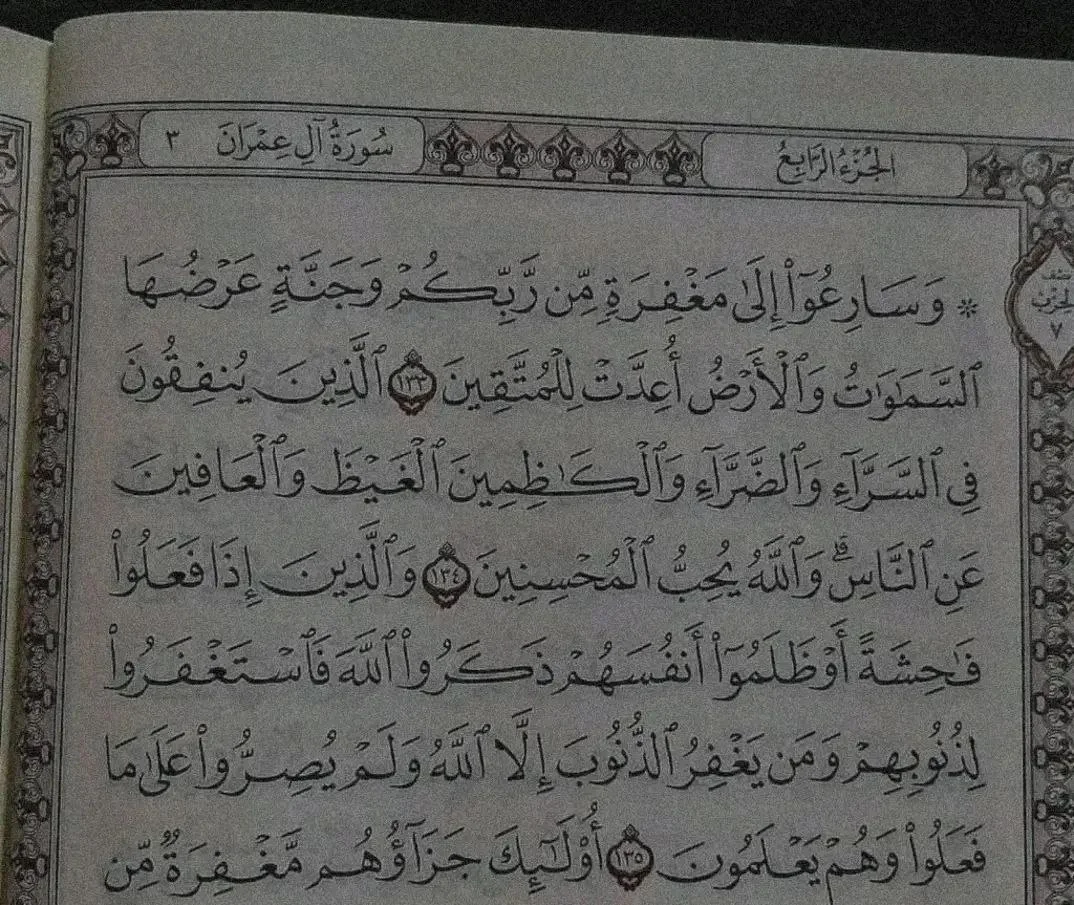 الجُزْءُ الرَّابِعُ
سُورَةُ آلِ عِمْرَانَ ٣
نصف
الحزب
٧
* وَسَارِعُوٓا۟ إِلَىٰ مَغْفِرَةٍ مِّن رَّبِّكُمْ وَجَنَّةٍ عَرْضُهَا
ٱلسَّمَٰوَٰتُ وَٱلْأَرْضُ أُعِدَّتْ لِلْمُتَّقِينَ ١٣٣ ٱلَّذِينَ يُنفِقُونَ
فِى ٱلسَّرَّآءِ وَٱلضَّرَّآءِ وَٱلْكَٰظِمِينَ ٱلْغَيْظَ وَٱلْعَافِينَ
عَنِ ٱلنَّاسِ ۗ وَٱللَّهُ يُحِبُّ ٱلْمُحْسِنِينَ ١٣٤ وَٱلَّذِينَ إِذَا فَعَلُوا۟
فَٰحِشَةً أَوْ ظَلَمُوٓا۟ أَنفُسَهُمْ ذَكَرُوا۟ ٱللَّهَ فَٱسْتَغْفَرُوا۟
لِذُنُوبِهِمْ وَمَن يَغْفِرُ ٱلذُّنُوبَ إِلَّا ٱللَّهُ وَلَمْ يُصِرُّوا۟ عَلَىٰ مَا
فَعَلُوا۟ وَهُمْ يَعْلَمُونَ ١٣٥ أُو۟لَٰٓئِكَ جَزَآؤُهُم مَّغْفِرَةٌ مِّن